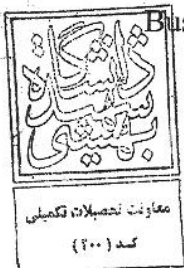 Bus
دانشگاه
شهید
بهشتی
معاونت تحصیلات تکمیلی
کمد (۲۰۰)